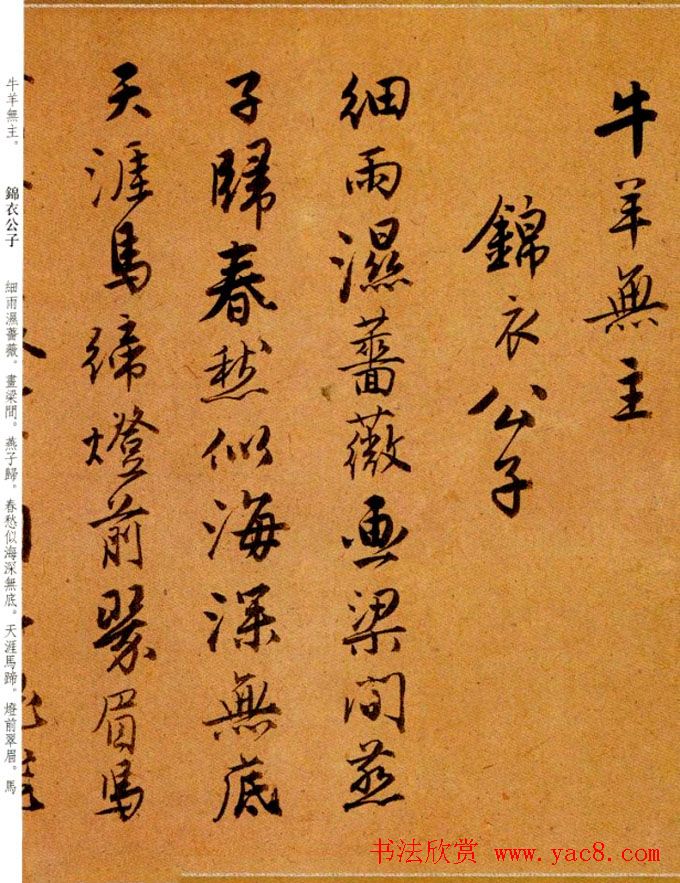 牛羊無主
錦衣公子
細雨濕薔薇画梁間燕
子歸春愁似海深無底
天涯馬蹄燈前翠眉馬
牛羊無主。 錦衣公子 細雨濕薔薇。畫梁間。燕子歸。春愁似海深無底。天涯馬蹄。燈前翠眉。馬
书法欣赏 www.yac8.com